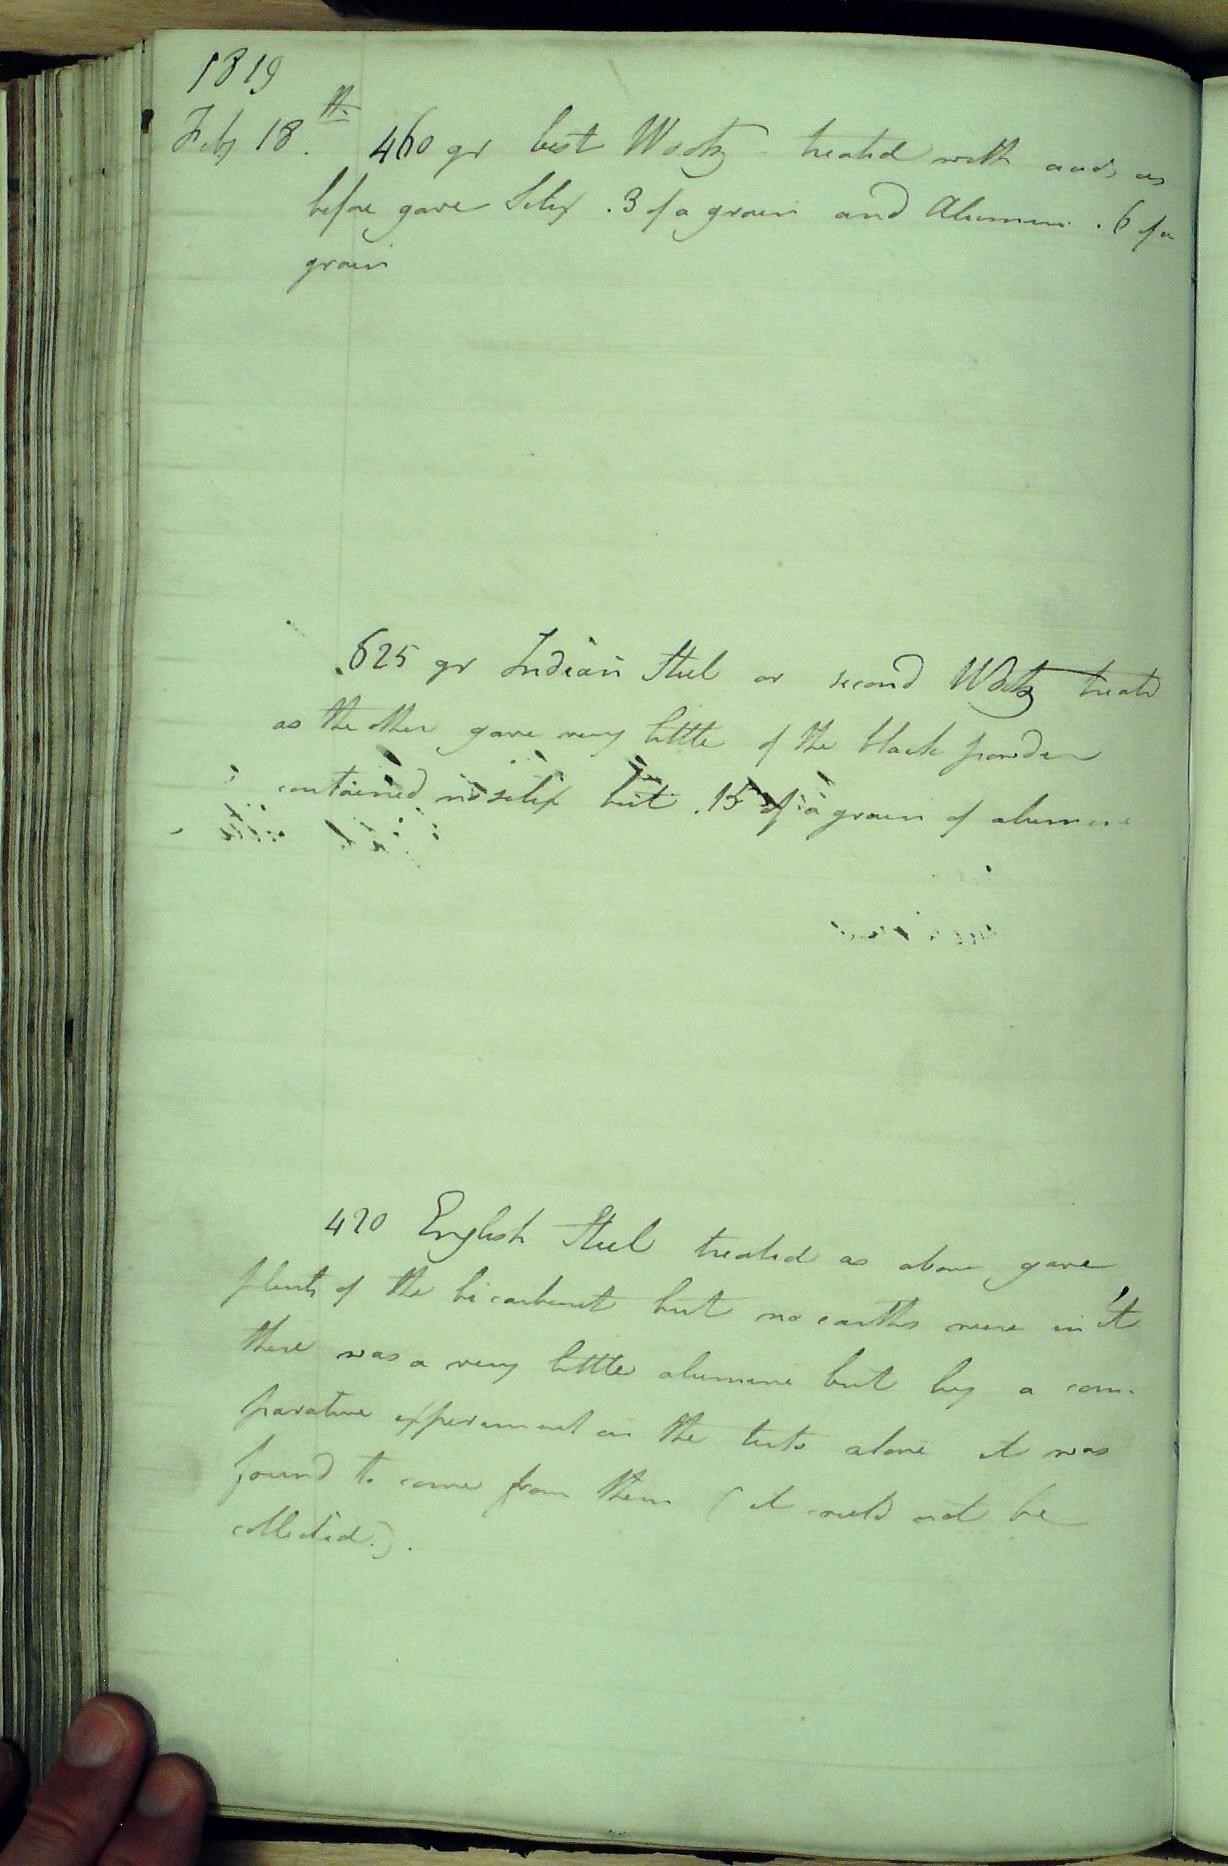 1819
Feby 18.th 460 gr best Wootz treated with acids as
before gave Silex .3 of a grain and Alumine .6 of a
grain
.625 gr Indian Steel or second Wootz treated
as the other gave very little of the black powder
contained no silex but .15 of a grain of alumine
420 English Steel treated as above gave
plenty of the bi carburet but no earths were in it
there was a very little alumine but by a com-
parative experiment on the tests alone it was
found to come from them (it could not be
collected.).